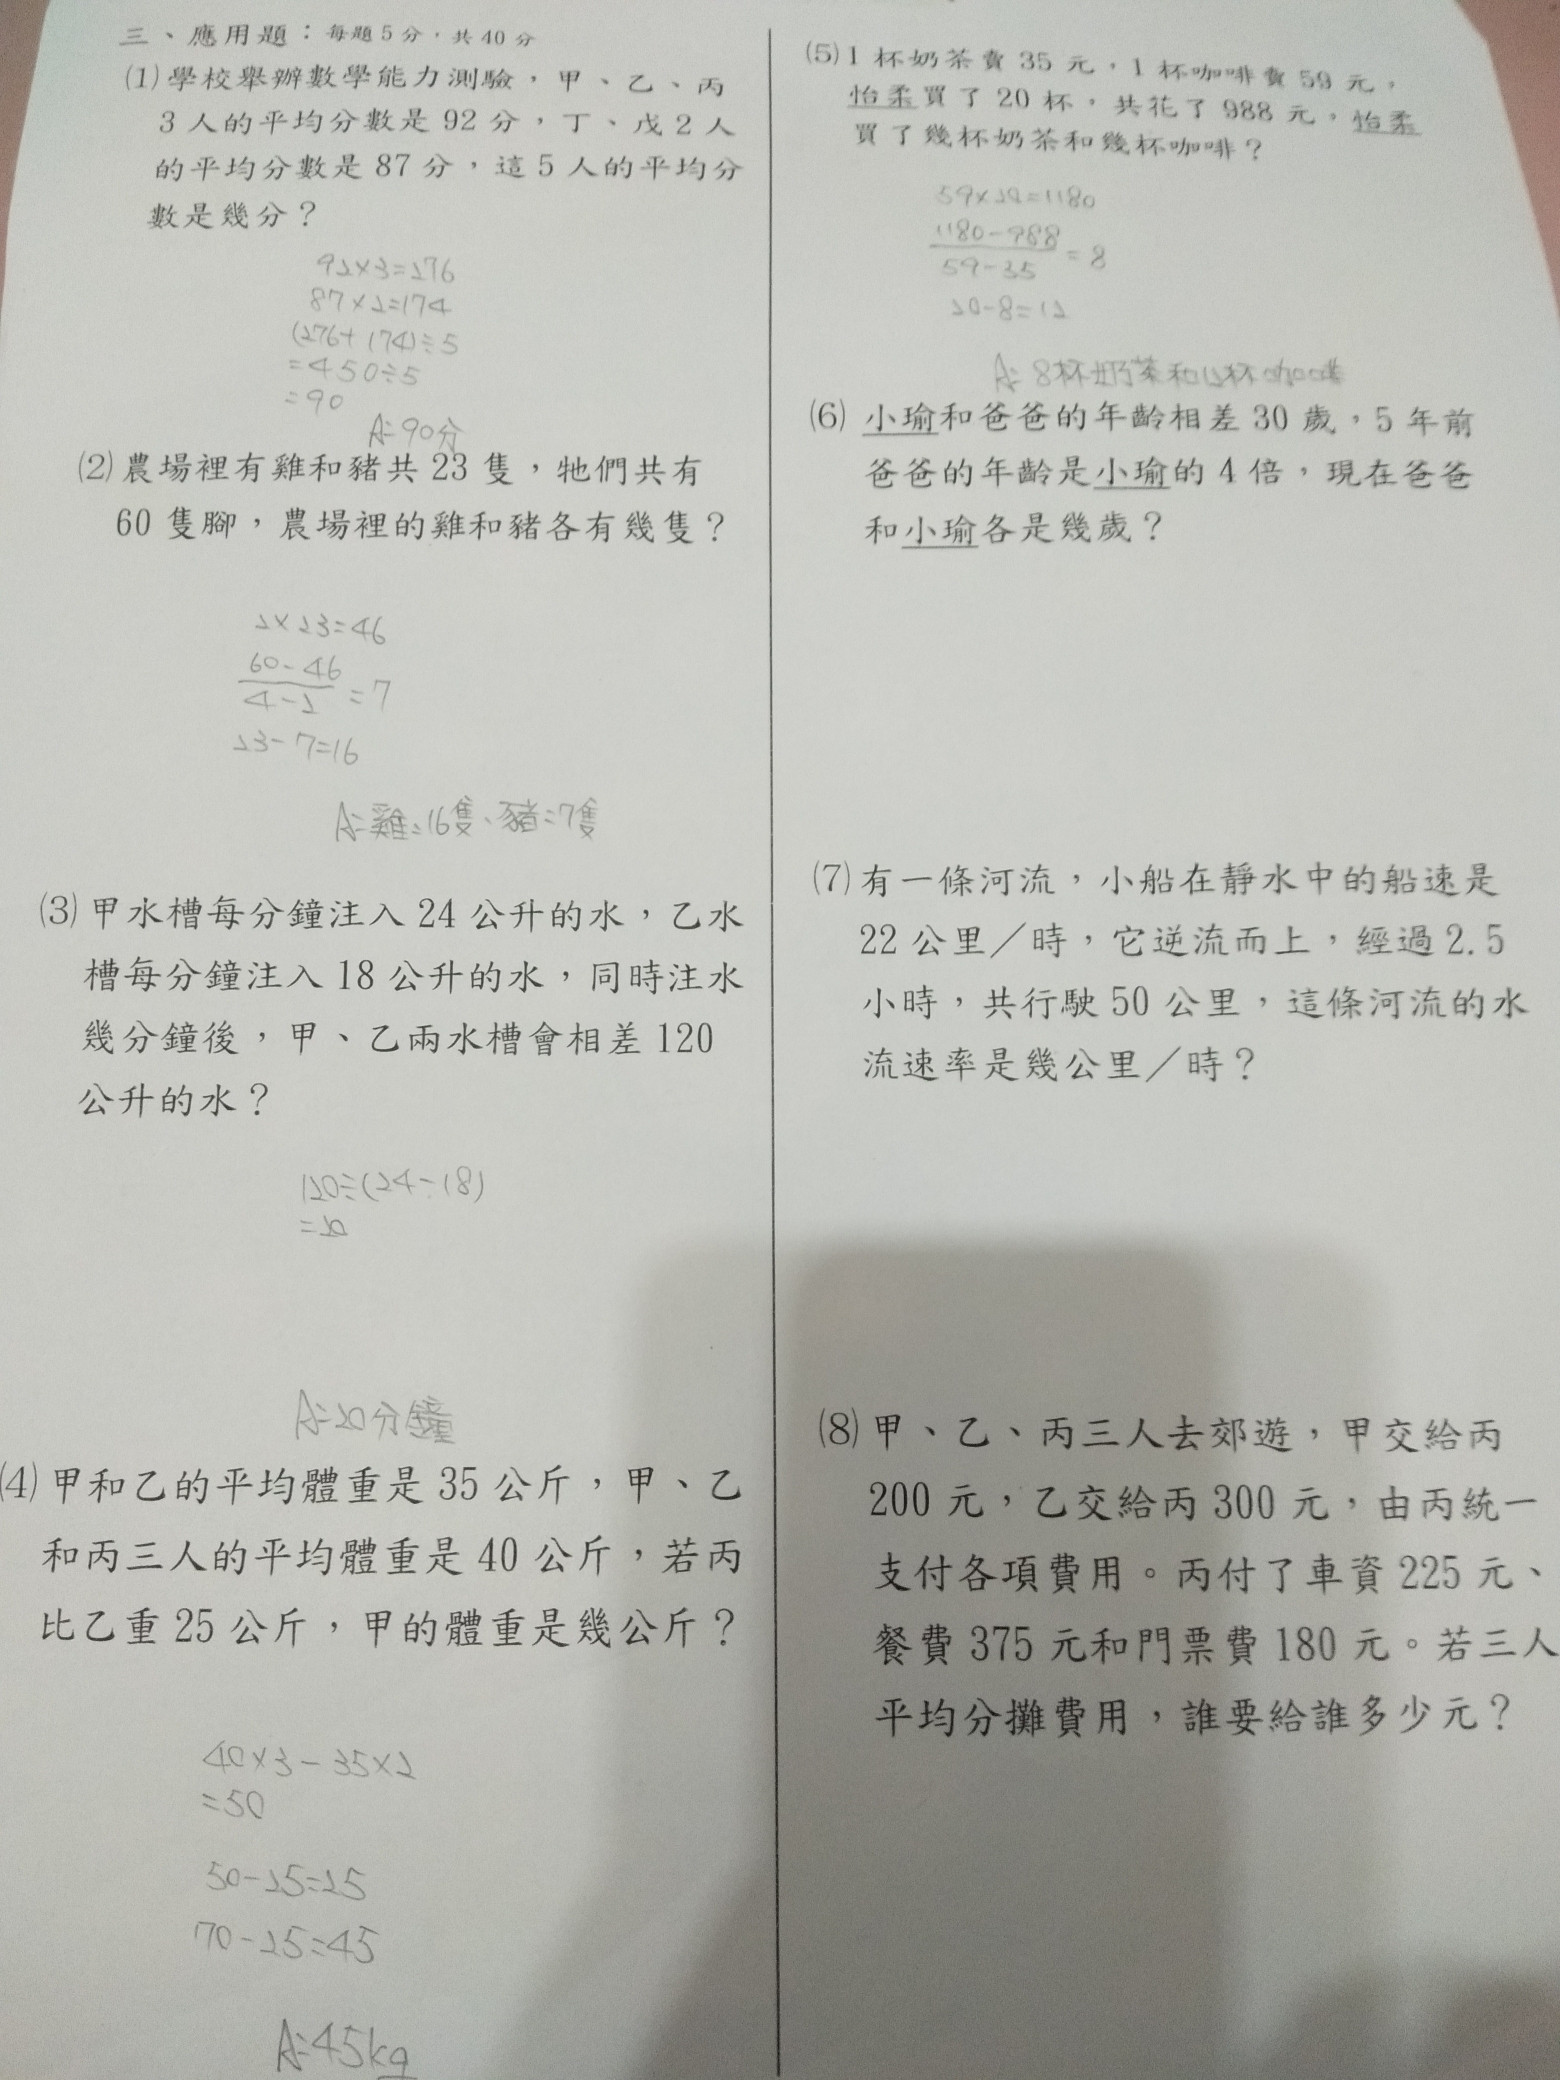 三、應用題：每題5分，共40分
⑴學校舉辦數學能力測驗，甲、乙、丙
3人的平均分數是92分，丁、戊2人
的平均分數是87分，這5人的平均分
數是幾分？
92×3=276
87×2=174
(276+174)÷5
=450÷5
=90
A:90分
⑵農場裡有雞和豬共23隻，牠們共有
60隻腳，農場裡的雞和豬各有幾隻？
2×23=46
60-46
4-2
=7
23-7=16
A:雞:16隻、豬:7隻
⑶甲水槽每分鐘注入24公升的水，乙水
槽每分鐘注入18公升的水，同時注水
幾分鐘後，甲、乙兩水槽會相差120
公升的水？
120÷(24-18)
=20
A:20分鐘
⑷甲和乙的平均體重是35公斤，甲、乙
和丙三人的平均體重是40公斤，若丙
比乙重25公斤，甲的體重是幾公斤？
40×3-35×2
=50
50-25=25
70-25=45
A:45kg
⑸1杯奶茶賣35元，1杯咖啡賣59元，
怡柔買了20杯，共花了988元，怡柔
買了幾杯奶茶和幾杯咖啡？
59×20=1180
1180-988
59-35
=8
20-8=12
A:8杯奶茶和12杯咖啡
⑹小瑜和爸爸的年齡相差30歲，5年前
爸爸的年齡是小瑜的4倍，現在爸爸
和小瑜各是幾歲？
⑺有一條河流，小船在靜水中的船速是
22公里／時，它逆流而上，經過2.5
小時，共行駛50公里，這條河流的水
流速率是幾公里／時？
⑻甲、乙、丙三人去郊遊，甲交給丙
200元，乙交給丙300元，由丙統一
支付各項費用。丙付了車資225元、
餐費375元和門票費180元。若三人
平均分攤費用，誰要給誰多少元？